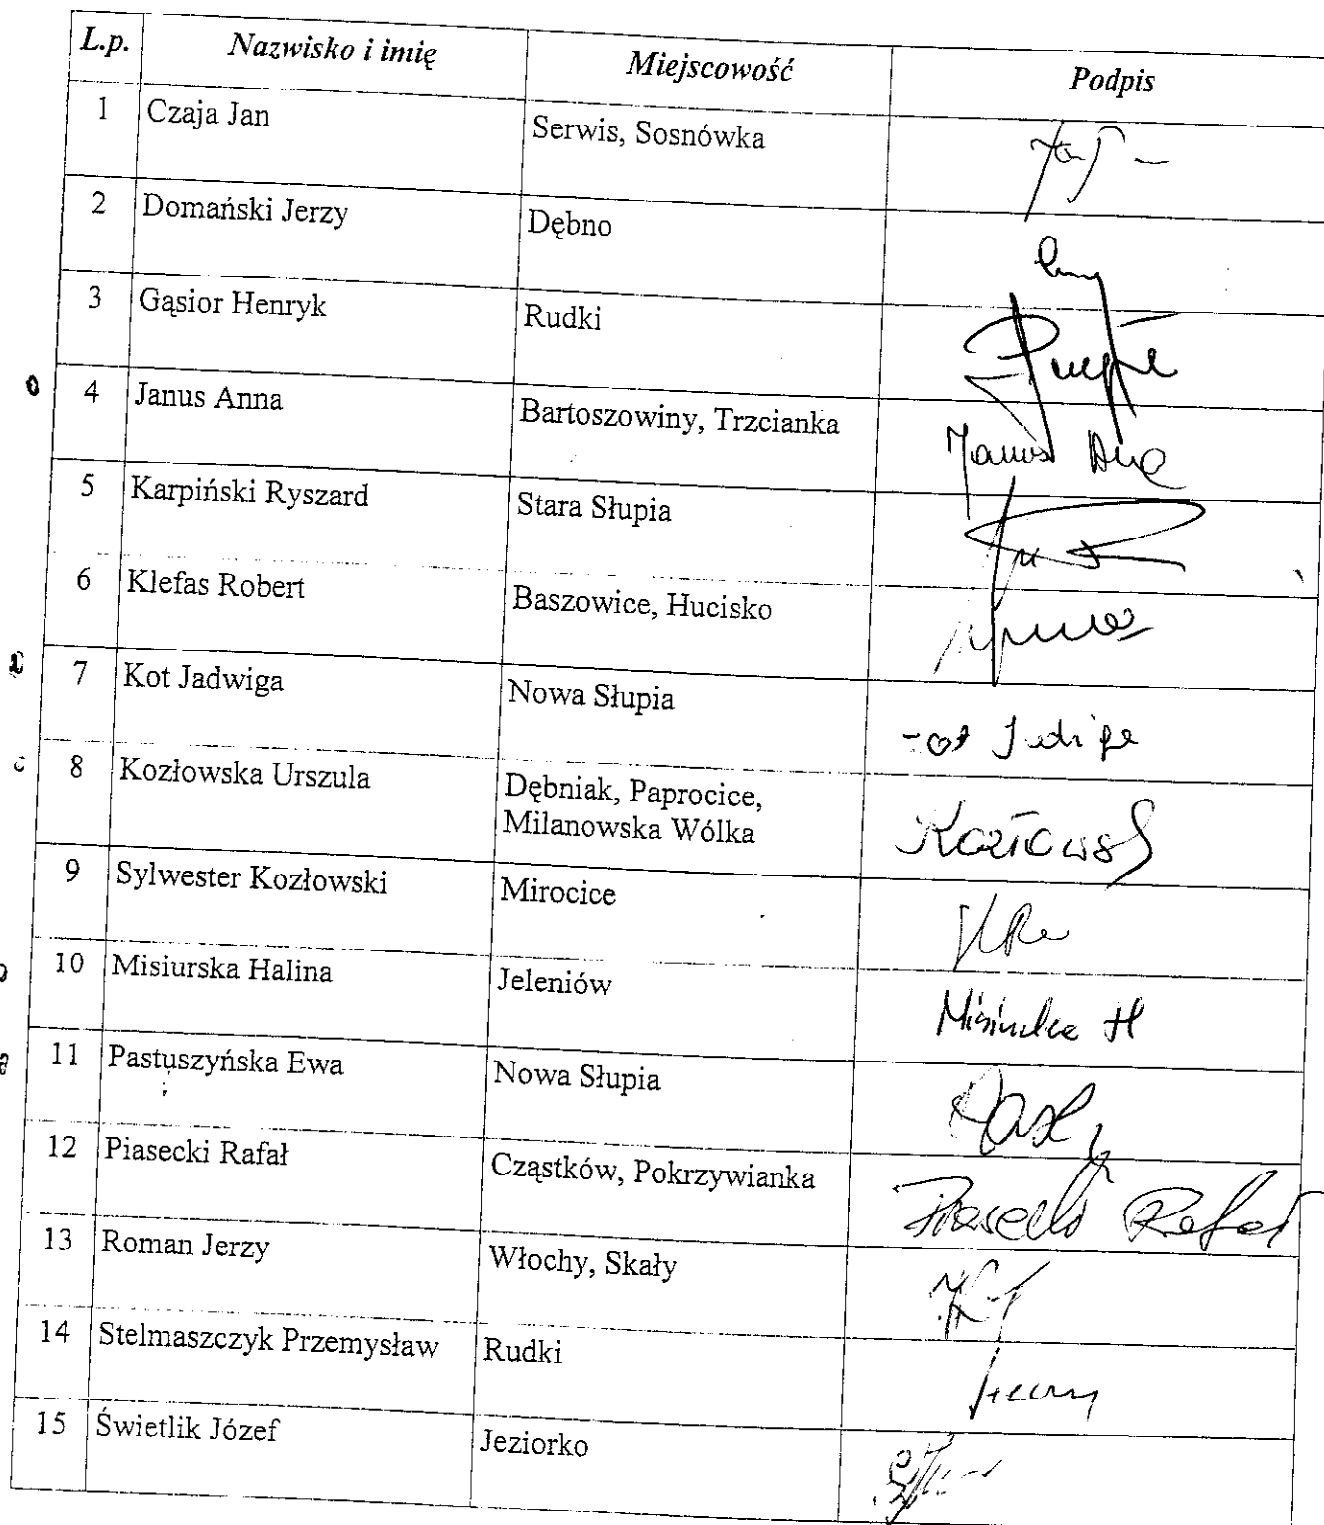 L.p. Nazwisko i imię Miejscowość Podpis
1 Czaja Jan Serwis, Sosnówka
2 Domański Jerzy Dębno
3 Gąsior Henryk Rudki
4 Janus Anna Bartoszowiny, Trzcianka Janus
5 Karpiński Ryszard Stara Słupia
6 Klefas Robert Baszowice, Hucisko
7 Kot Jadwiga Nowa Słupia
8 Kozłowska Urszula Dębniak, Paprocice,
Milanowska Wólka
9 Sylwester Kozłowski Mirocice
10 Misiurska Halina Jeleniów
11 Pastuszyńska Ewa Nowa Słupia
12 Piasecki Rafał Cząstków, Pokrzywianka Piasecki Rafał
13 Roman Jerzy Włochy, Skały
14 Stelmaszczyk Przemysław Rudki
15 Świetlik Józef Jeziorko